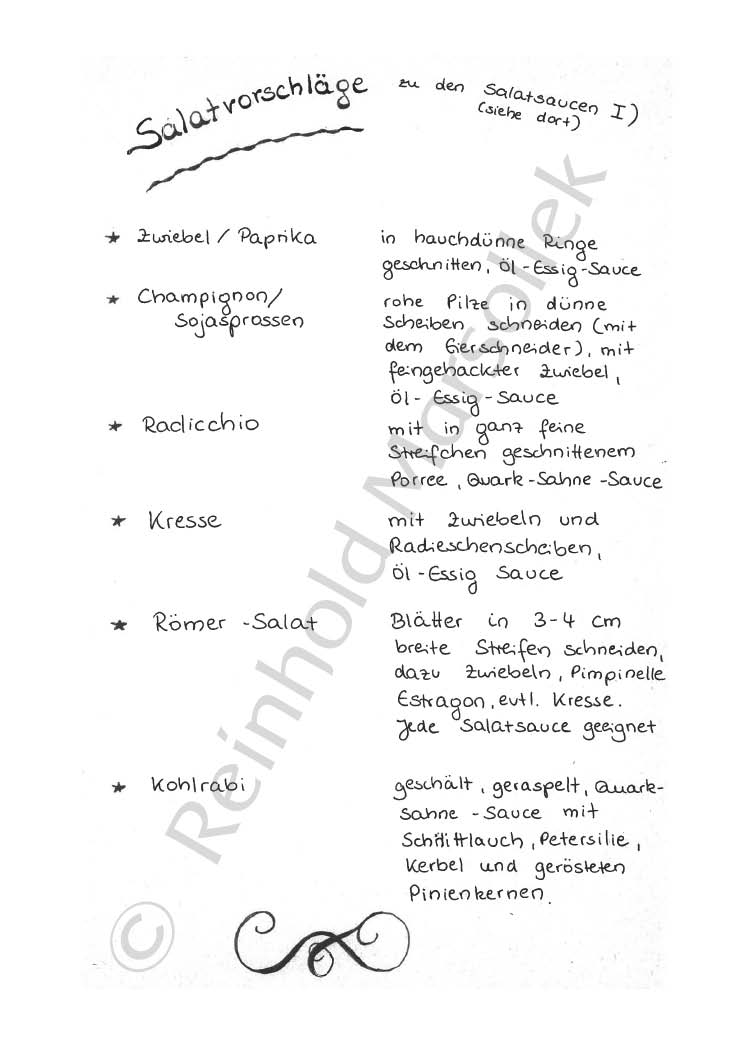 Salatvorschläge zu den Salatsaucen I)
(siehe dort)
★ Zwiebel / Paprika in hauchdünne Ringe
geschnitten, Öl-Essig-Sauce
★ Champignon/ rohe Pilze in dünne
Sojasprossen Scheiben schneiden (mit
dem Eierschneider), mit
feingehackter Zwiebel,
Öl-Essig-Sauce
★ Radicchio mit in ganz feine
Streifchen geschnittenem
Porree, Quark-Sahne-Sauce
★ Kresse mit Zwiebeln und
Radieschenscheiben,
Öl-Essig Sauce
★ Römer-Salat Blätter in 3-4 cm
breite Streifen schneiden,
dazu Zwiebeln, Pimpinelle
Estragon, evtl. Kresse.
Jede Salatsauce geeignet
★ Kohlrabi geschält, geraspelt, Quark-
sahne-Sauce mit
Schnittlauch, Petersilie,
Kerbel und gerösteten
Pinienkernen.
© Reinhold Marsollek